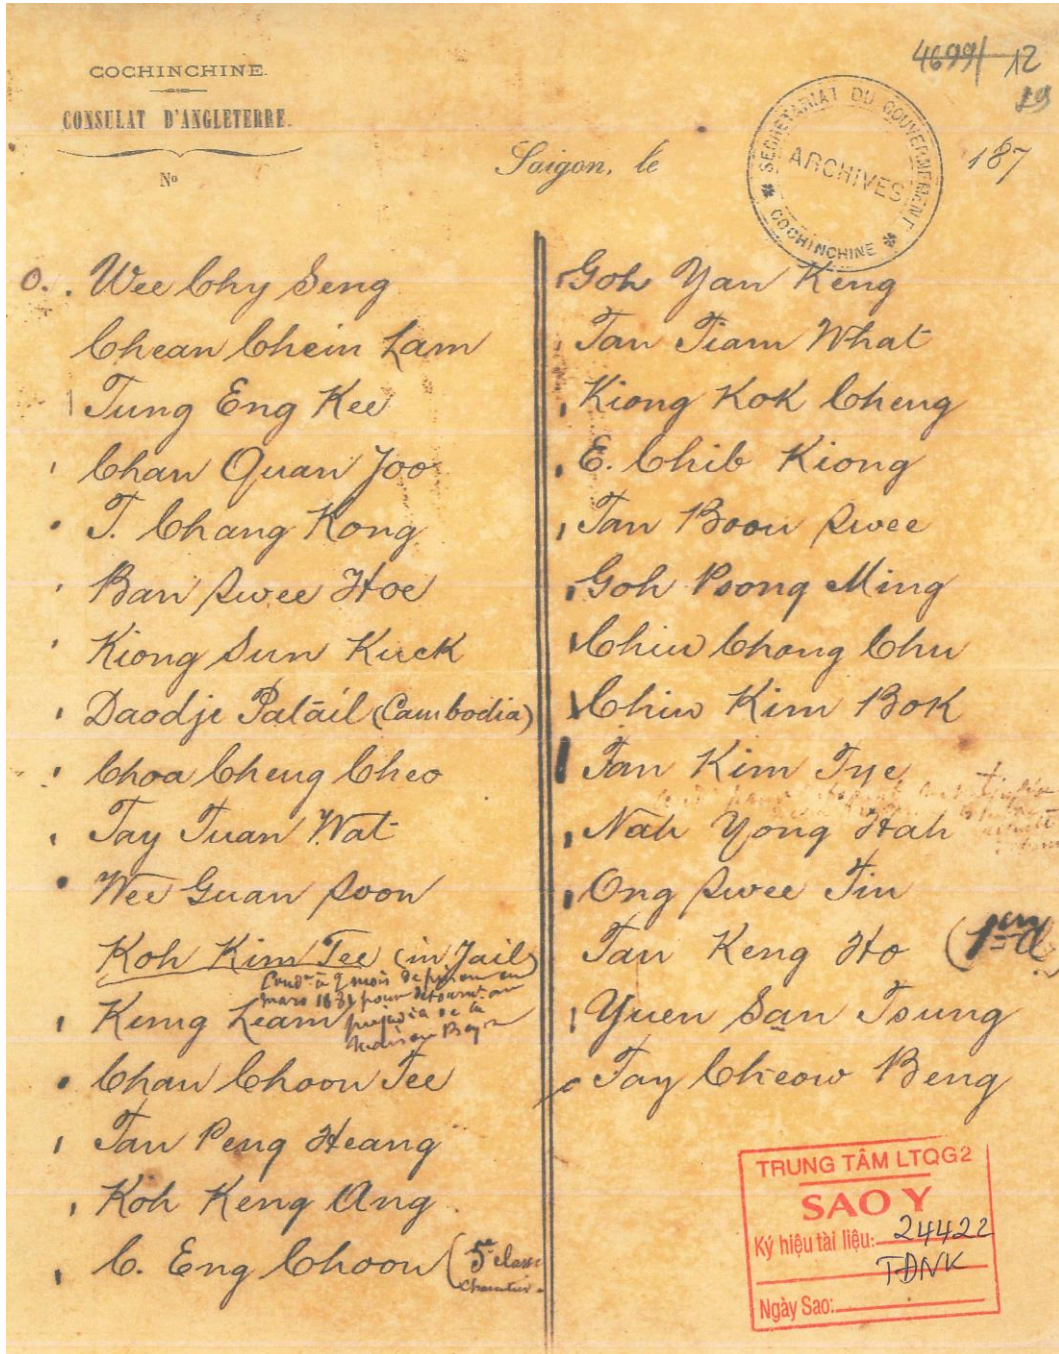 4699/ 12
COCHINCHINE.
CONSULAT D'ANGLETERRE.
Nº
Saigon, le
187
SECRÉTARIAT DU GOUVERNEMENT
ARCHIVES
COCHINCHINE
O. Wee Chy Seng
Chean Chein Lam
Tung Eng Kee
Chan Quan Joo
T. Chang Kong
Ban Swee Hoe
Kiong Sun Kuck
Daodje Patail (Cambodia)
Choa Cheng Cheo
Tay Tuan Wat
Wee Guan Soon
Koh Kim Tee (in Jail)
Condⁿ à 9 mois de prison en
mars 1881 pour détournt au
préjudice de la
Keng Leam
Chan Choon Tee
Tan Peng Heang
Koh Keng Ang
C. Eng Choon (5e classe
Goh Yan Keng
Tan Tiam What
Kiong Kok Cheng
E. Chib Kiong
Tan Boon Swee
Goh Psong Ming
Chiu Chong Chu
Chiu Kim Bok
Tan Kim Tye
Nah Yong Hah
Ong Swee Tin
Tan Keng Ho
Yuen San Tsung
Tay Cheow Beng
TRUNG TÂM LTQG2
SAO Y
Ký hiệu tài liệu: 24422
TĐNK
Ngày Sao: